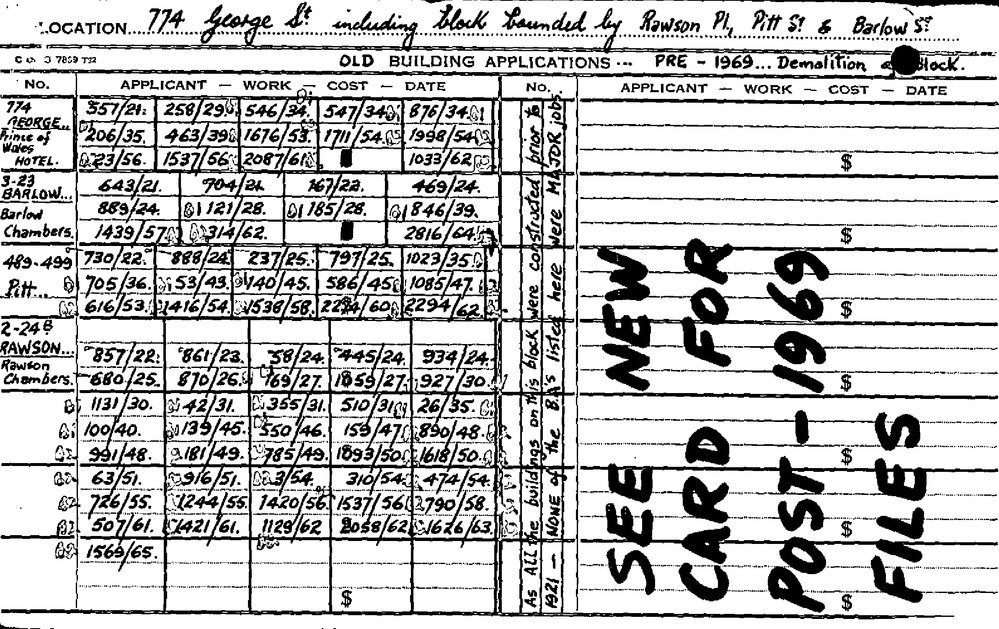 LOCATION.....774 George St including block bounded by Rawson Pl, Pitt St & Barlow St
OLD BUILDING APPLICATIONS ... PRE - 1969... Demolition Block.
No. APPLICANT — WORK — COST — DATE No. APPLICANT — WORK — COST — DATE
774 GEORGE... Prince of Wales HOTEL.
557/21. 258/29 546/34 547/34 876/34
206/35. 463/39 1676/53. 1711/54 1998/54
23/56. 1537/56 2087/61 1033/62
3-23 BARLOW... Barlow Chambers.
643/21. 704/21. 167/22. 469/24.
889/24. 1121/28. 1185/28. 1846/39.
1439/57 314/62. 2816/64.
489-499 Pitt...
730/22. 888/24 237/25. 797/25. 1023/35
705/36. 53/43. 140/45. 586/45 1085/47.
616/53. 1416/54. 1538/58. 2294/62
2-24B RAWSON... Rawson Chambers.
857/22. 861/23. 58/24. 445/24. 934/24.
680/25. 870/26 169/27. 1059/27 927/30.
1131/30. 42/31. 355/31. 510/31 26/35.
100/40. 139/45. 550/46. 159/47 890/48.
991/48. 181/49. 785/49. 1093/50 1618/50.
63/51. 916/51. 3/54. 310/54. 474/54.
726/55. 1244/55. 1420/56 1537/56 2790/58.
507/61. 1421/61. 1129/62 2058/62 1626/63.
1569/65.
$
As ALL the buildings on this block were constructed prior to
1921 — NONE of the B.A's listed here were MAJOR jobs.
$
$
$
$
$
$
$
SEE NEW
CARD FOR
POST-1969
FILES